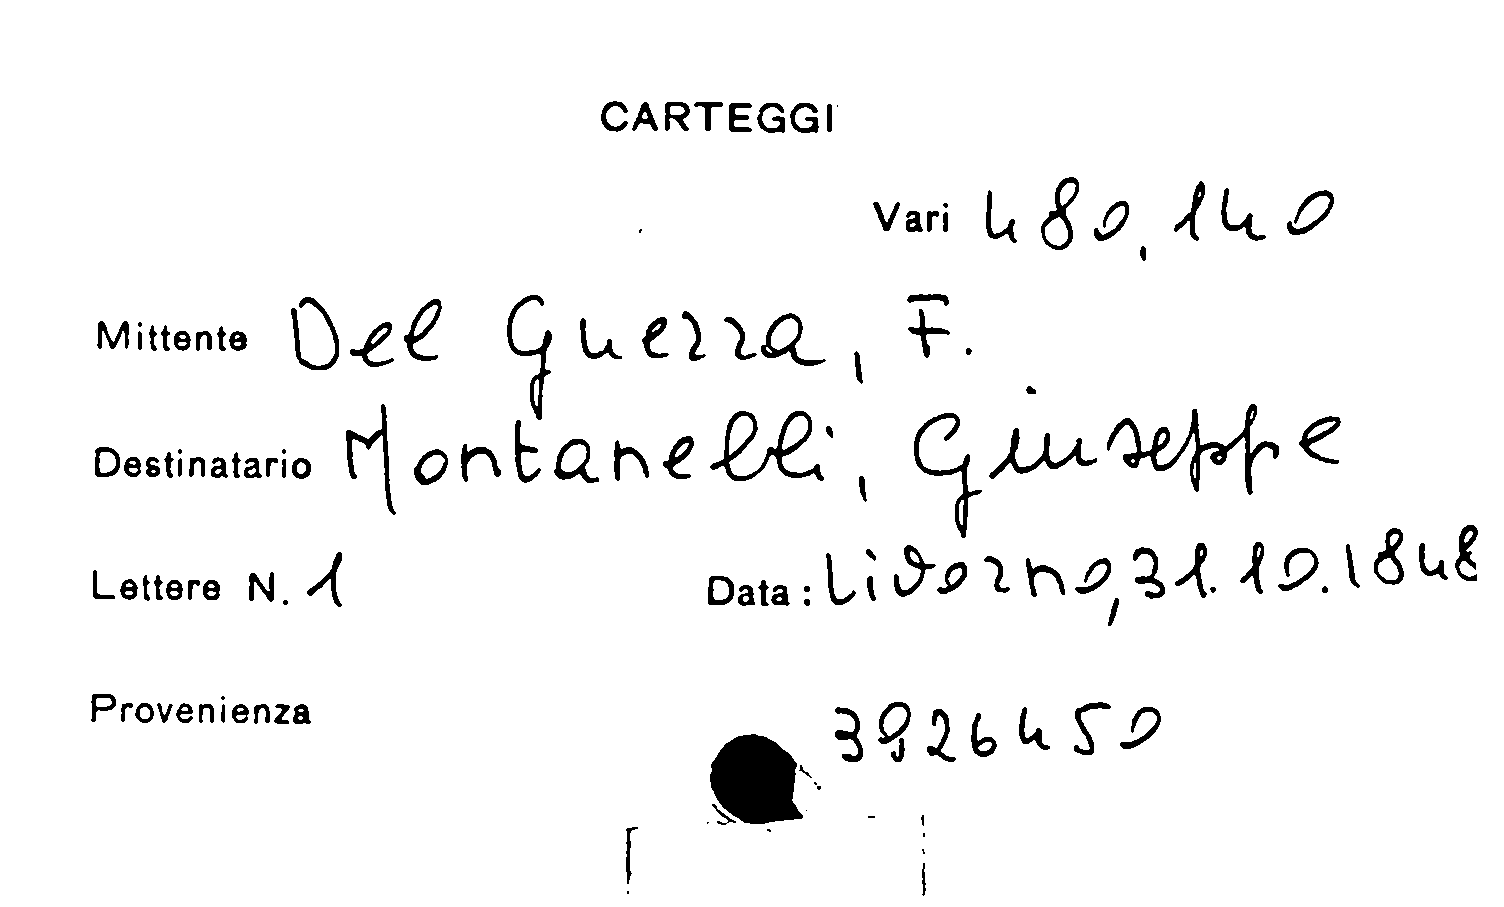 CARTEGGI
Vari 480,140
Mittente Del Guerra, F.
Destinatario Montanelli, Giuseppe
Lettere N. 1 Data: Livorno, 31.10.1848
Provenienza
3926450